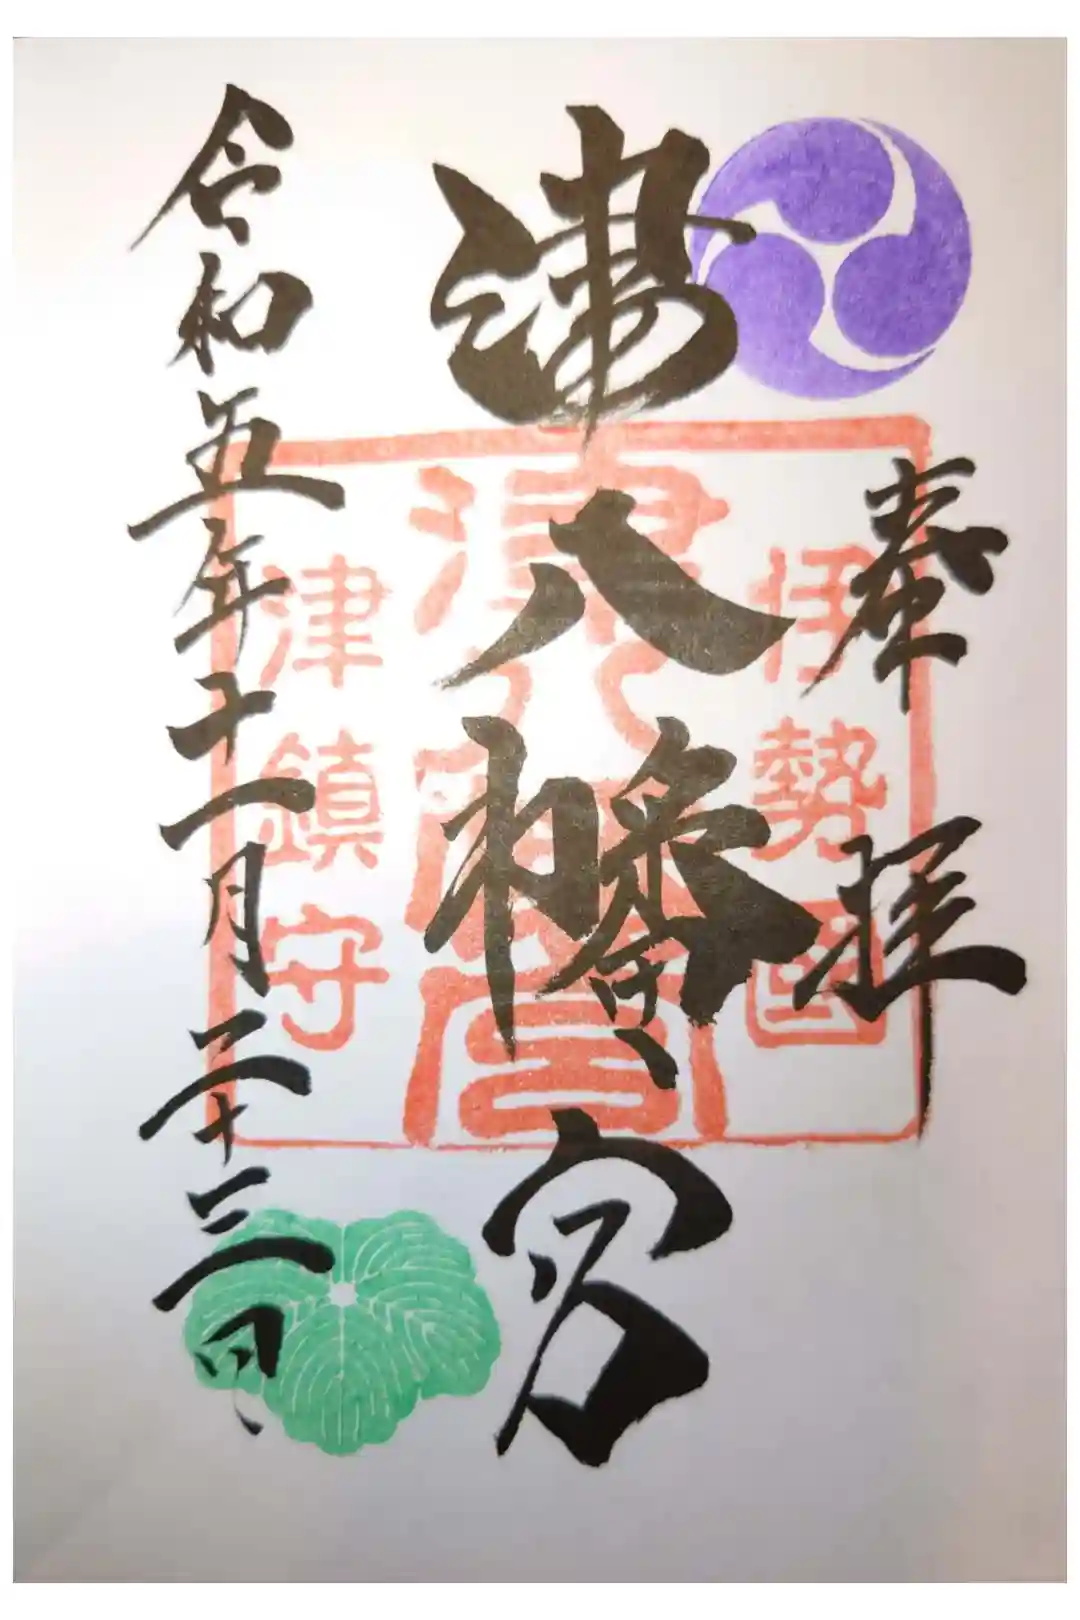 奉拝
津八幡宮
令和五年十一月二十三日
伊勢國
津八幡宮
津鎮守